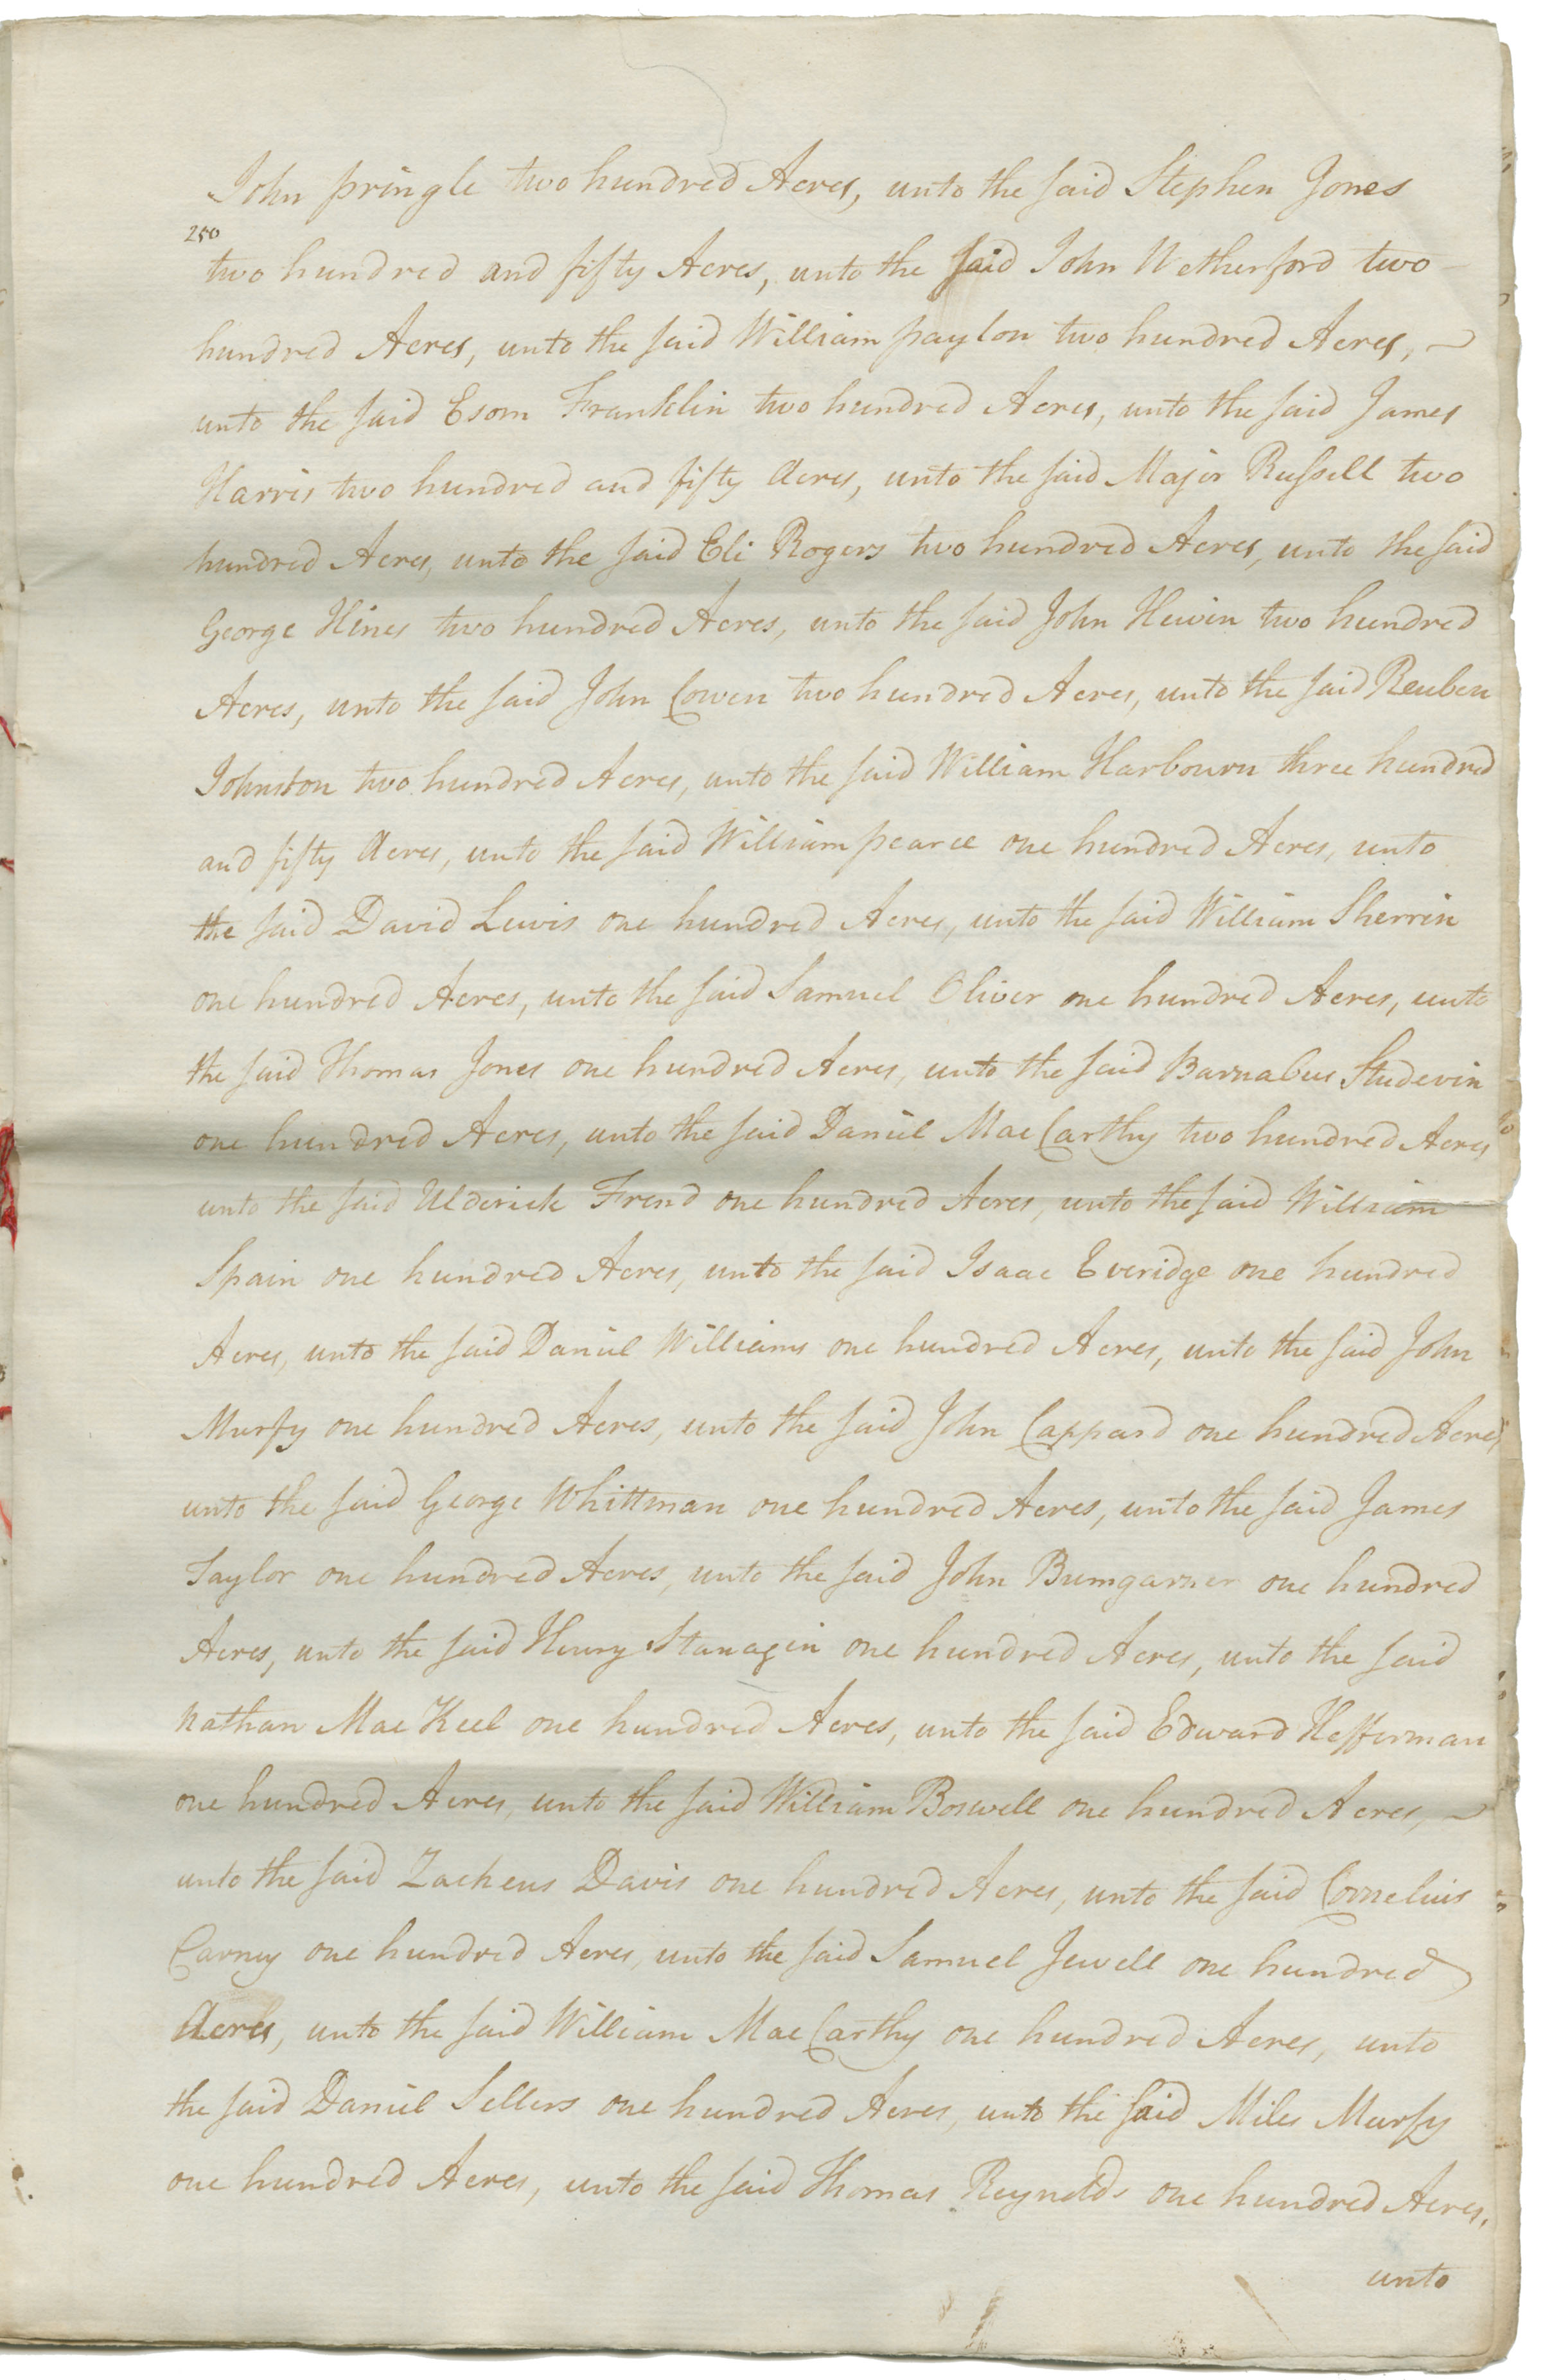 John pringle two hundred Acres, unto the said Stephen Jones
250
two hundred and fifty Acres, unto the said John Wetherford two
hundred Acres, unto the said William paylon two hundred Acres,
unto the said Esom Franklin two hundred Acres, unto the said James
Harris two hundred and fifty Acres, unto the said Major Russell two
hundred Acres, unto the said Eli Rogers two hundred Acres, unto the said
George Hines two hundred Acres, unto the said John Hewin two hundred
Acres, unto the said John Cowen two hundred Acres, unto the said Reuben
Johnston two hundred Acres, unto the said William Harbourn three hundred
and fifty Acres, unto the said William pearce one hundred Acres, unto
the said David Lewis one hundred Acres, unto the said William Sherrin
one hundred Acres, unto the said Samuel Oliver one hundred Acres, unto
the said Thomas Jones one hundred Acres, unto the said Barnabus Studevin
one hundred Acres, unto the said Daniel Mac Carthy two hundred Acres
unto the said Ulderick Frend one hundred Acres, unto the said William
Spain one hundred Acres, unto the said Isaac Everidge one hundred
Acres, unto the said Daniel Williams one hundred Acres, unto the said John
Murfy one hundred Acres, unto the said John Cappard one hundred Acres,
unto the said George Whittman one hundred Acres, unto the said James
Taylor one hundred Acres, unto the said John Bumgarner one hundred
Acres, unto the said Henry Stanagin one hundred Acres, unto the said
Nathan Mac Keel one hundred Acres, unto the said Edward Hefferman
one hundred Acres, unto the said William Boswell one hundred Acres,
unto the said Zacheus Davis one hundred Acres, unto the said Cornelius
Carney one hundred Acres, unto the said Samuel Jewell one hundred
Acres, unto the said William Mac Carthy one hundred Acres, unto
the said Daniel Sellers one hundred Acres, unto the said Miles Murfy
one hundred Acres, unto the said Thomas Reynolds one hundred Acres,
unto